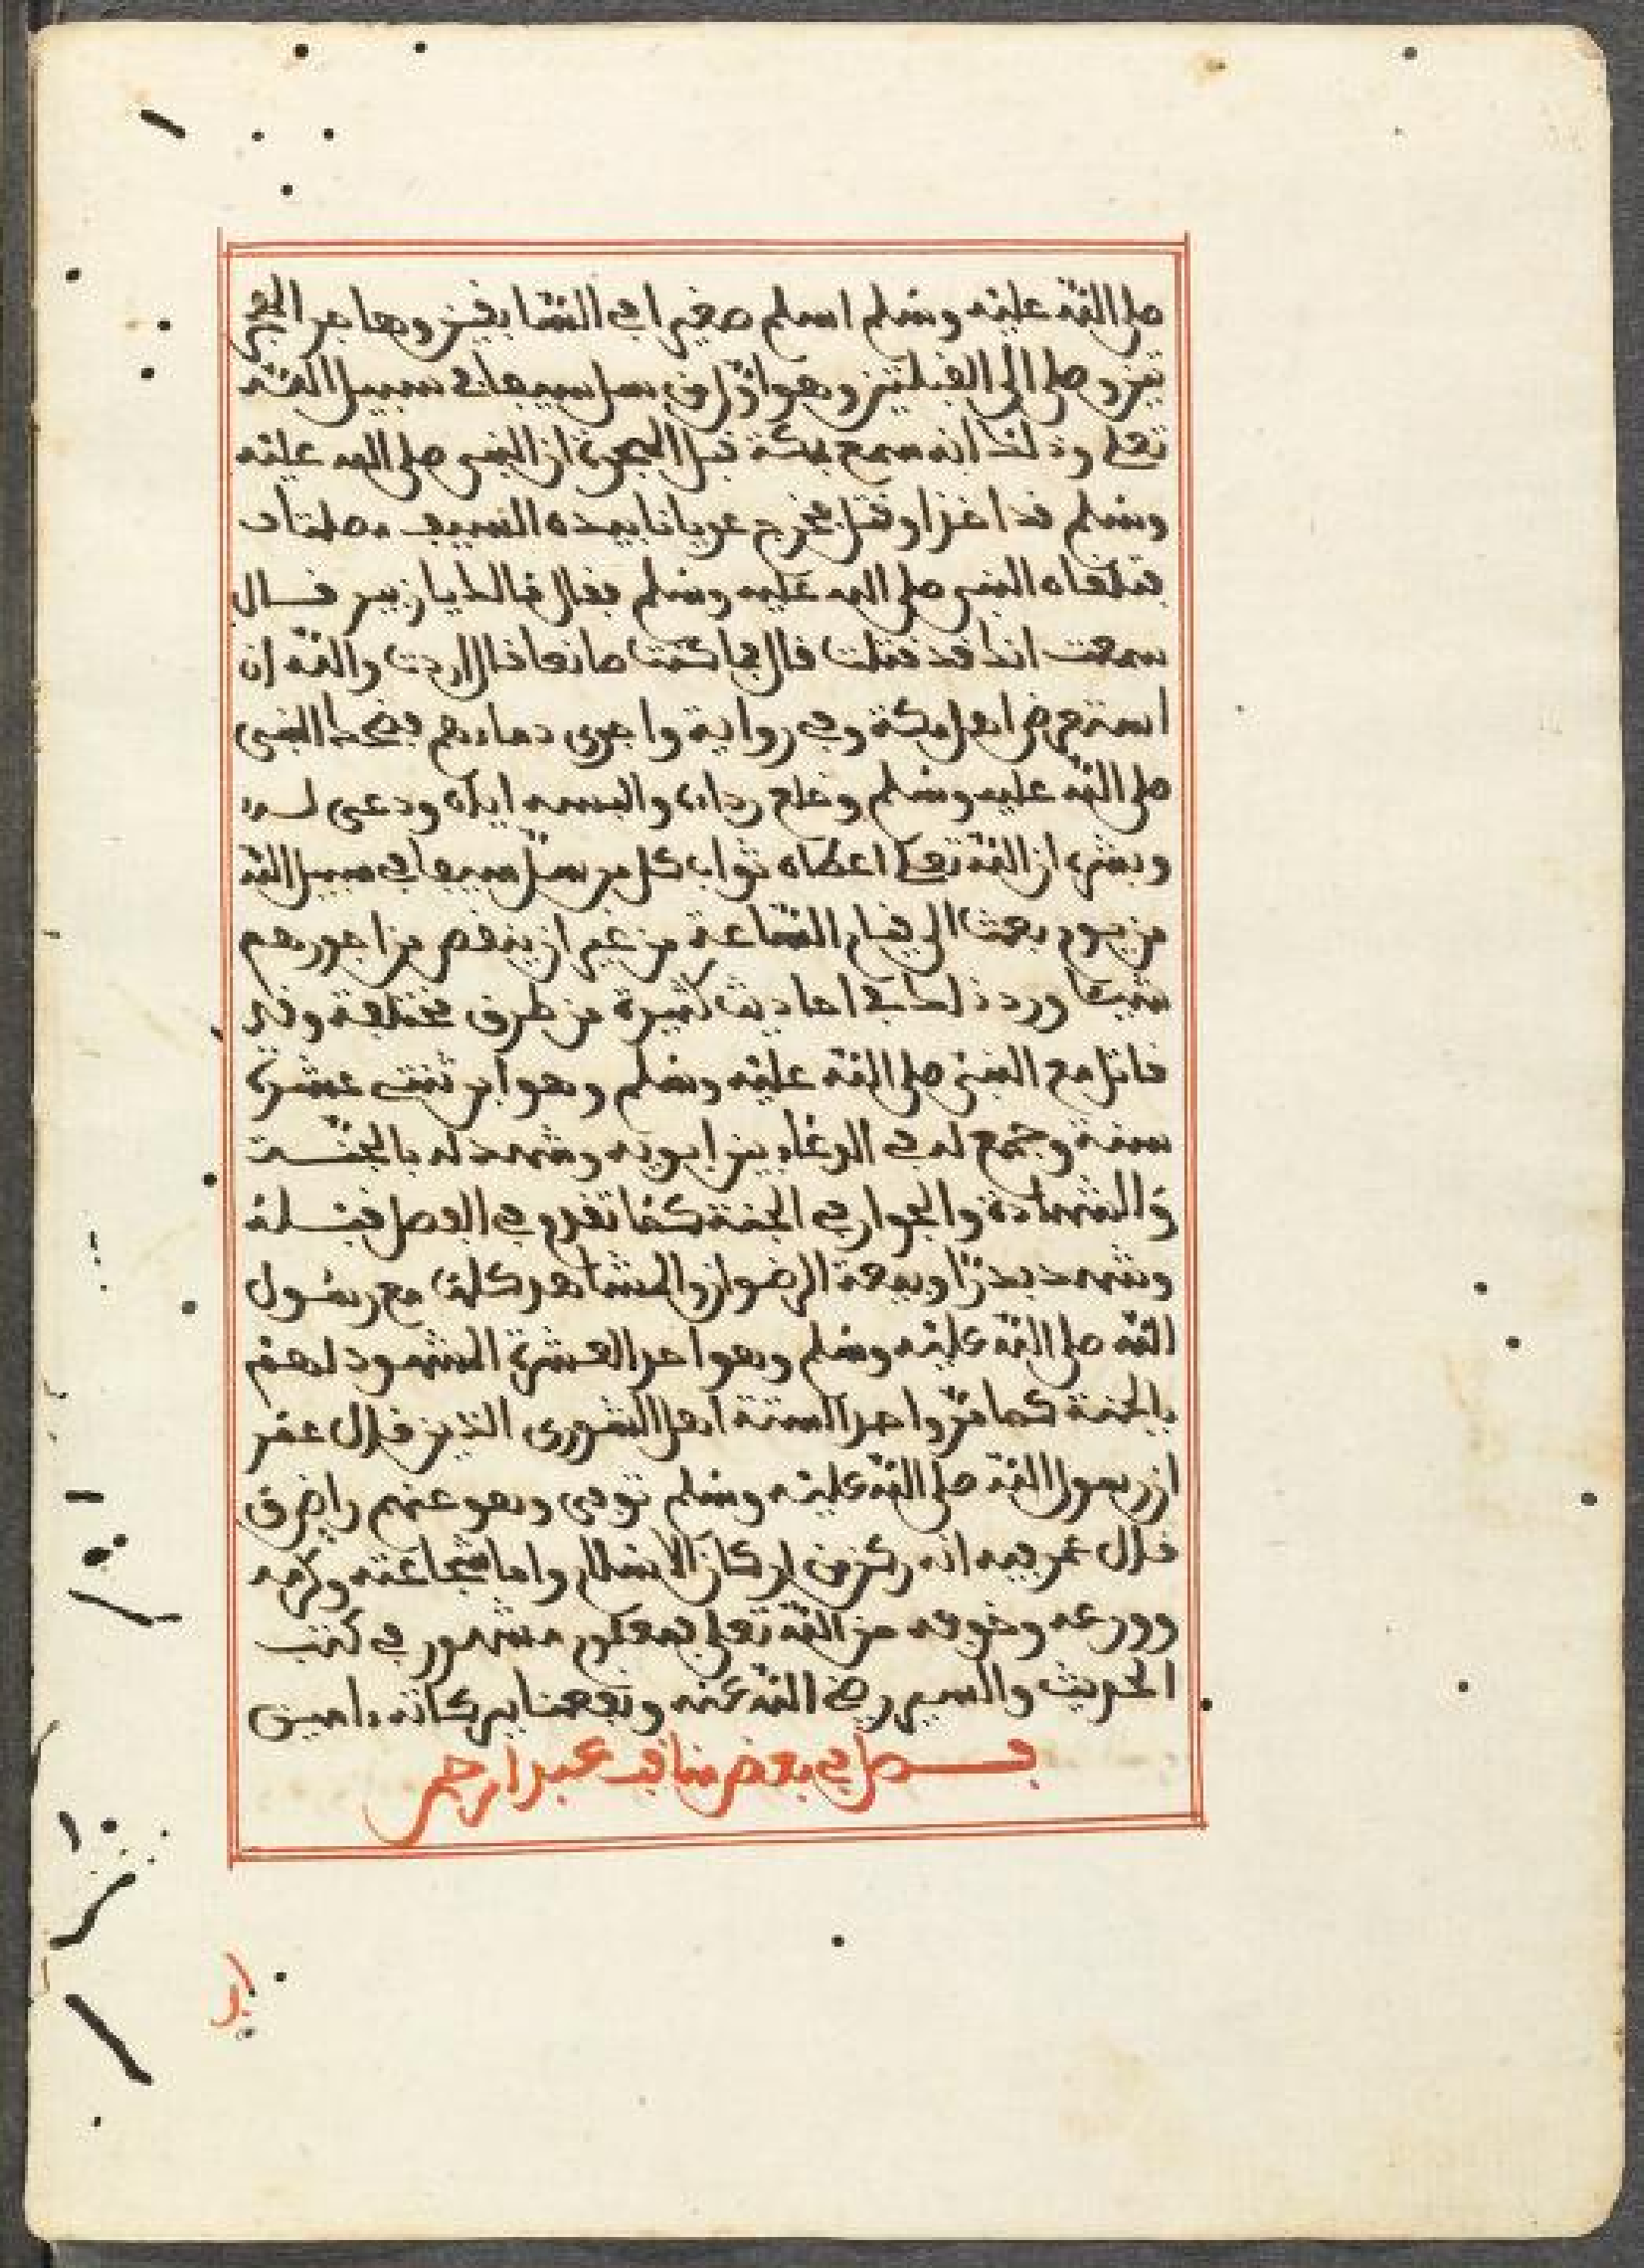 صلى الله عليه وسلم اسلم صغيرا في السابقين وهاجر الهجر
تين وصلى الى القبلتين وهو اول من سل سيفا في سبيل الله
تعلى وذلك انه سمع بمكة قبل الهجرة ان النبي صلى الله عليه
وسلم قد اخذ او قتل فخرج عريانا بيده السيف مصلتا
فتلقاه النبي صلى الله عليه وسلم فقال مالك يا زبير قال
سمعت انك قد قتلت قال فما كنت صانعا قال اردت والله ان
استعرض اهل مكة وفي رواية واجرى دماءهم فضحك النبي
صلى الله عليه وسلم وخلع رداءه والبسه اياه ودعى له
وبشره ان الله تعلى اعطاه ثواب كل من سل سيفا في سبيل الله
من يوم بعث الى قيام الساعة من غير ان ينقص من اجورهم
شيئا ورد ذلك في احاديث كثيرة من طرق مختلفة وقد
قاتل مع النبي صلى الله عليه وسلم وهو ابن ثنتي عشرة
سنة وجمع له في الدعاء بين ابويه وشهد له بالجنة
والشهادة والجوار في الجنة كما تقدم في الفصل قبله
وشهد بدرا وبيعة الرضوان والمشاهد كلها مع رسول
الله صلى الله عليه وسلم وهو احد العشرة المشهود لهم
بالجنة كما مر واحد الستة اهل الشورى الذين قال عمر
ان رسول الله صلى الله عليه وسلم توفى وهو عنهم راض وقد
قال عمر فيه انه ركن من اركان الاسلام واما شجاعته وكرمه
وورعه وخوفه من الله تعلى فمعلوم مشهور في كتب
الحديث والسير رضي الله عنه ونفعنا ببركاته ءامين
فصل في بعض مناقب عبد الرحمن
ابن